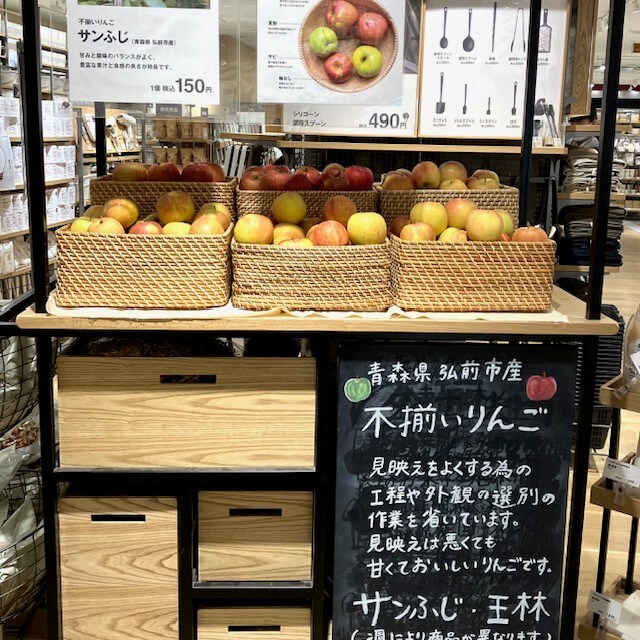 不揃いりんご
サンふじ
(青森県 弘前市産)
甘みと酸味のバランスがよく、
豊富な果汁と食感の良さが特長です。
1個 税込150円
変形
サビ
軸なし
シリコーン
調理スプーン
税込490円
青森県弘前市産
不揃いりんご
見映えをよくする為の
工程や外観の選別の
作業を省いています。
見映えは悪くても
甘くておいしいりんごです。
サンふじ・王林
(週により商品が異なります